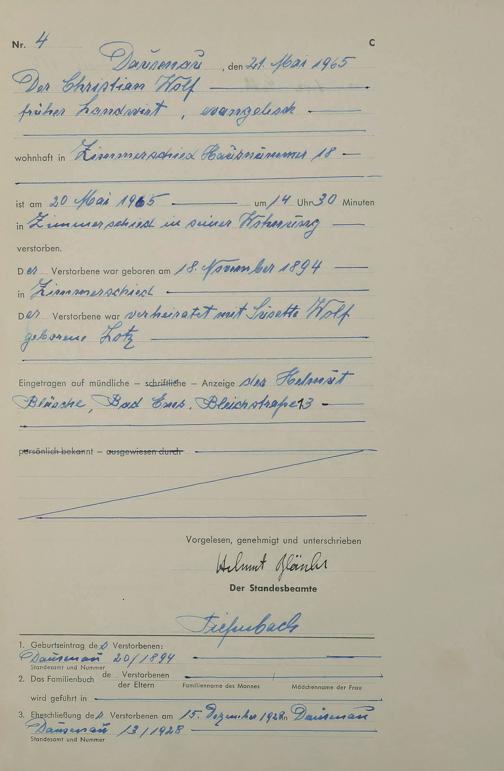 Nr. 4 C
Dausenau, den 21. Mai 1965
Der Christian Wolf
früher Landwirt, evangelisch
wohnhaft in Zimmerschied Hausnummer 18
ist am 20 Mai 1965 um 14 Uhr 30 Minuten
in Zimmerschied in seiner Wohnung
verstorben.
Der Verstorbene war geboren am 18. November 1894
in Zimmerschied
Der Verstorbene war verheiratet mit Susette Wolf
geborene Lotz
Eingetragen auf mündliche – schriftliche – Anzeige des Helmut
Bläsche, Bad Ems. Bleichstraße 13
persönlich bekannt – ausgewiesen durch
Vorgelesen, genehmigt und unterschrieben
Helmut
Der Standesbeamte
Tiefenbach
1. Geburtseintrag des Verstorbenen:
Dausenau 20/1894
Standesamt und Nummer
2. Das Familienbuch de Verstorbenen
der Eltern Familienname des Mannes Mädchenname der Frau
wird geführt in
3. Eheschließung des Verstorbenen am 15. Dezember 1928 in Dausenau
Dausenau 13/1928
Standesamt und Nummer